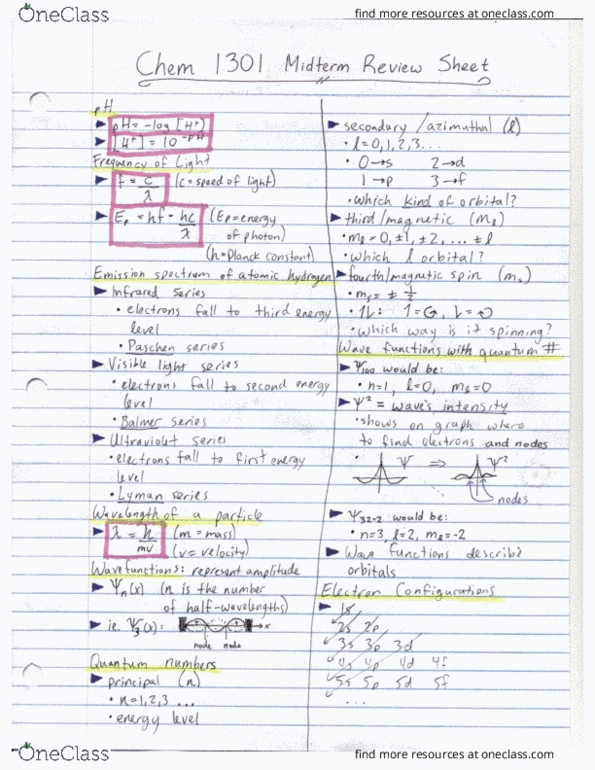 OneClass
find more resources at oneclass.com
Chem 1301 Midterm Review Sheet
pH
► pH = -log [H⁺]
► [H⁺] = 10^-pH
Frequency of Light
► f = c/λ (c = speed of light)
► Ep = hf = hc/λ (Ep = energy
of photon)
(h = Planck constant)
Emission spectrum of atomic hydrogen
► Infrared Series
• electrons fall to third energy
level
• Paschen series
► Visible light series
• electrons fall to second energy
level
• Balmer series
► Ultraviolet series
• electrons fall to first energy
level
• Lyman series
Wavelength of a particle
► λ = h/mv (m = mass)
(v = velocity)
Wavefunctions: represent amplitude
► Ψn(x) (n is the number
of half-wavelengths)
► ie. Ψ3(x): x
node node
Quantum numbers
► principal (n)
• n = 1, 2, 3 ...
• energy level
► secondary / azimuthal (l)
• l = 0, 1, 2, 3...
• 0→s 2→d
1→p 3→f
• which kind of orbital?
► third/magnetic (ml)
• ml = 0, ±1, ±2, ... ±l
• which l orbital?
► fourth/magnetic spin (ms)
• ms = ± 1/2
• 1⇂: 1 = ↺, ⇂ = ↻
• which way is it spinning?
Wave functions with quantum #
► Ψ100 would be:
• n=1, l=0, ml=0
► Ψ² = wave's intensity
• shows on graph where
to find electrons and nodes
• Ψ ⇒ Ψ²
nodes
► Ψ32-2 would be:
• n=3, l=2, ml=-2
► Wave functions describe
orbitals
Electron Configurations
► 1s
2s 2p
3s 3p 3d
4s 4p 4d 4f
5s 5p 5d 5f
...
OneClass
find more resources at oneclass.com